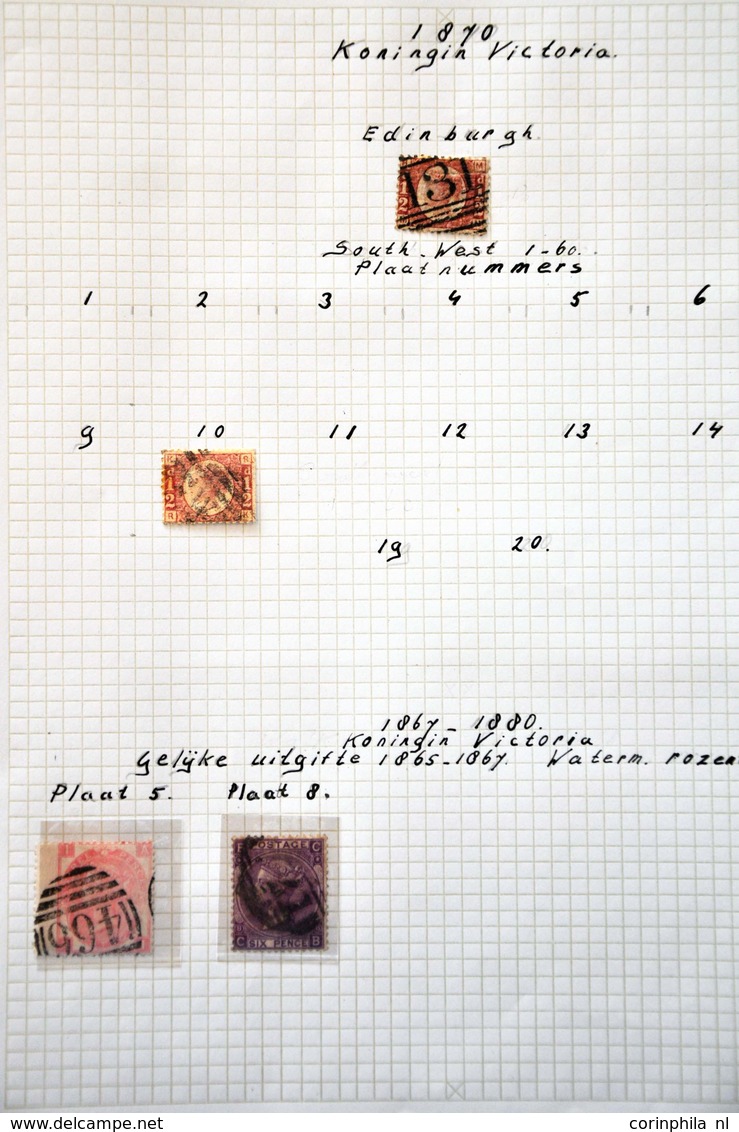 1870
Koningin Victoria.
Edinburgh
M
1/2
d
131
South-West 1-60.
Plaatnummers
1 2 3 4 5 6
9 10 11 12 13 14
R R
1/2 d 1/2
R R
19 20.
1867-1880.
Koningin Victoria
Gelijke uitgifte 1865-1867. Waterm. rozen
Plaat 5. Plaat 8.
466
POSTAGE C
C SIX PENCE B
corinphila nl